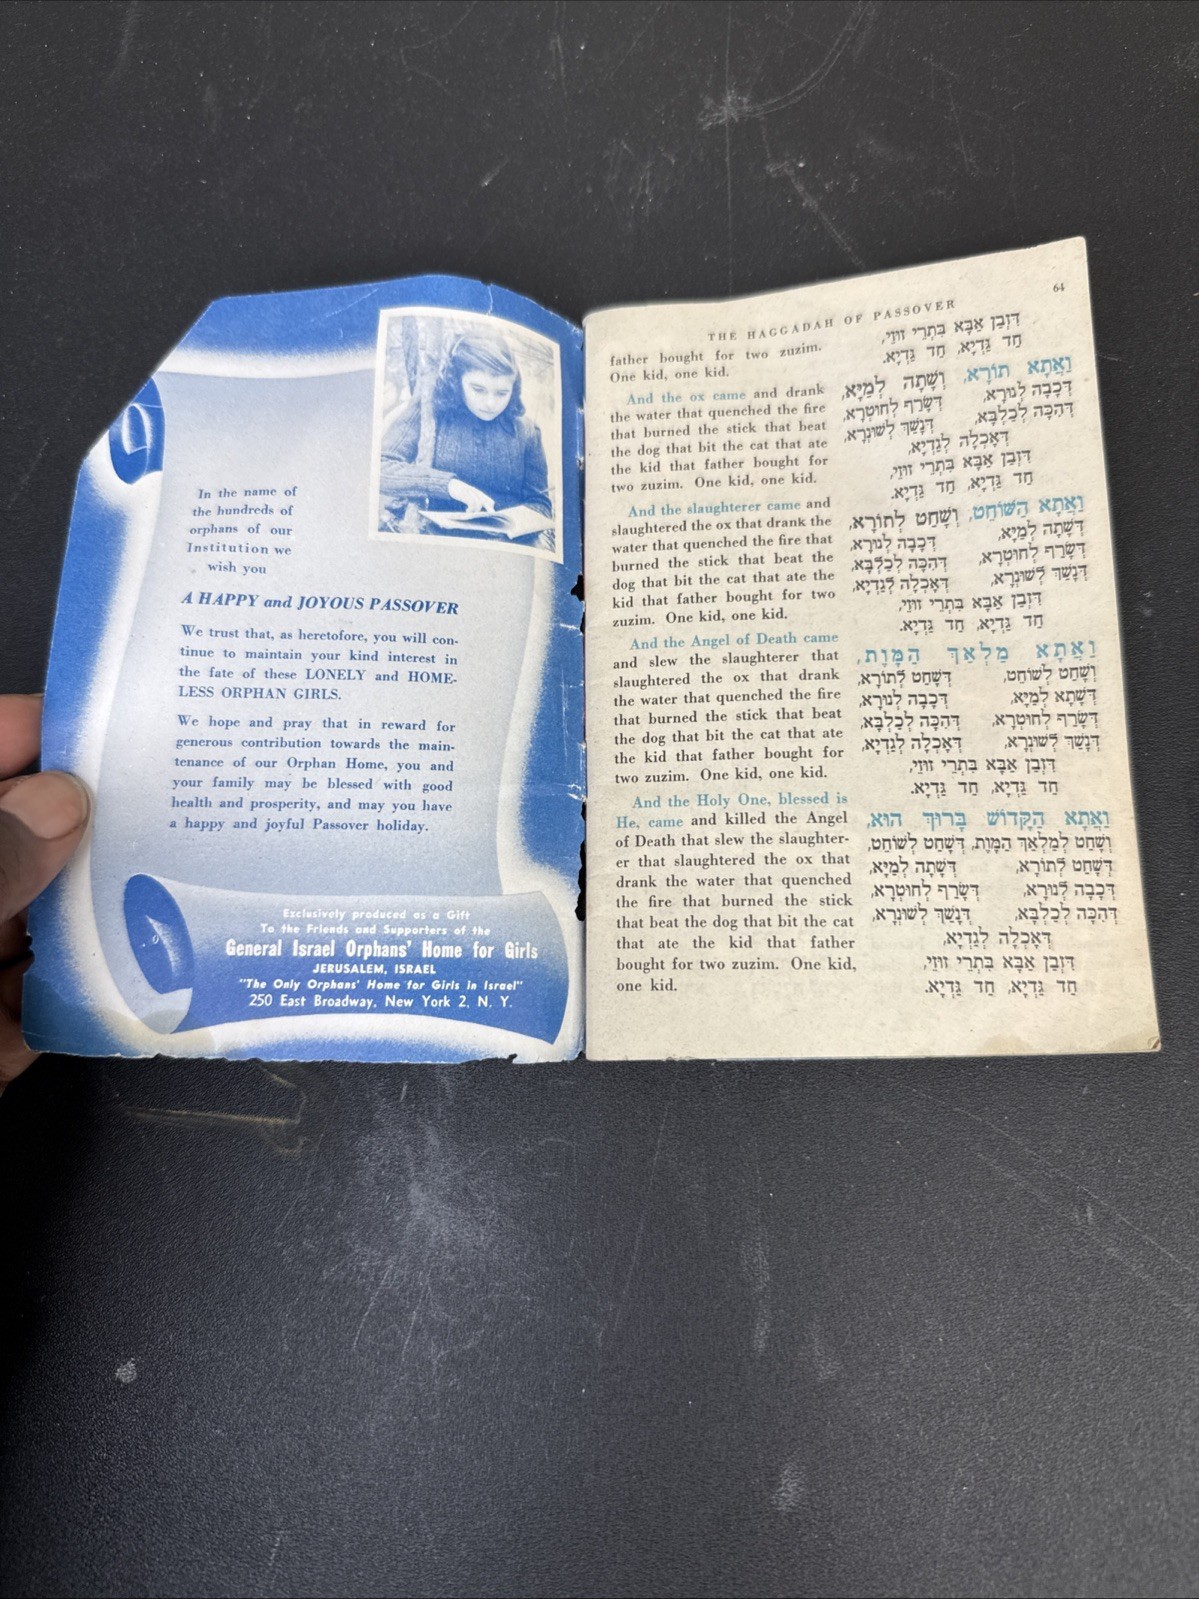 In the name of
the hundreds of
orphans of our
Institution we
wish you
A HAPPY and JOYOUS PASSOVER
We trust that, as heretofore, you will con-
tinue to maintain your kind interest in
the fate of these LONELY and HOME-
LESS ORPHAN GIRLS.
We hope and pray that in reward for
generous contribution towards the main-
tenance of our Orphan Home, you and
your family may be blessed with good
health and prosperity, and may you have
a happy and joyful Passover holiday.
Exclusively produced as a Gift
To the Friends and Supporters of the
General Israel Orphans' Home for Girls
JERUSALEM, ISRAEL
"The Only Orphans' Home for Girls in Israel"
250 East Broadway, New York 2, N. Y.
64
THE HAGGADAH OF PASSOVER
father bought for two zuzim.
One kid, one kid.
And the ox came and drank
the water that quenched the fire
that burned the stick that beat
the dog that bit the cat that ate
the kid that father bought for
two zuzim. One kid, one kid.
And the slaughterer came and
slaughtered the ox that drank the
water that quenched the fire that
burned the stick that beat the
dog that bit the cat that ate the
kid that father bought for two
zuzim. One kid, one kid.
And the Angel of Death came
and slew the slaughterer that
slaughtered the ox that drank
the water that quenched the fire
that burned the stick that beat
the dog that bit the cat that ate
the kid that father bought for
two zuzim. One kid, one kid.
And the Holy One, blessed is
He, came and killed the Angel
of Death that slew the slaughter-
er that slaughtered the ox that
drank the water that quenched
the fire that burned the stick
that beat the dog that bit the cat
that ate the kid that father
bought for two zuzim. One kid,
one kid.
דְּזְבַן אַבָּא בִּתְרֵי זוּזֵי,
חַד גַּדְיָא, חַד גַּדְיָא.
וַאֲתָא תוֹרָא, וְשָׁתָה לְמַיָּא,
דְּכָבָה לְנוּרָא, דְּשָׂרַף לְחוּטְרָא,
דְּהִכָּה לְכַלְבָּא, דְּנָשַׁךְ לְשׁוּנְרָא,
דְּאָכְלָה לְגַדְיָא,
דְּזְבַן אַבָּא בִּתְרֵי זוּזֵי,
חַד גַּדְיָא, חַד גַּדְיָא.
וַאֲתָא הַשּׁוֹחֵט, וְשָׁחַט לְתוֹרָא,
דְּשָׁתָה לְמַיָּא, דְּכָבָה לְנוּרָא,
דְּשָׂרַף לְחוּטְרָא, דְּהִכָּה לְכַלְבָּא,
דְּנָשַׁךְ לְשׁוּנְרָא, דְּאָכְלָה לְגַדְיָא,
דְּזְבַן אַבָּא בִּתְרֵי זוּזֵי,
חַד גַּדְיָא, חַד גַּדְיָא.
וַאֲתָא מַלְאַךְ הַמָּוֶת,
וְשָׁחַט לְשׁוֹחֵט, דְּשָׁחַט לְתוֹרָא,
דְּשָׁתָא לְמַיָּא, דְּכָבָה לְנוּרָא,
דְּשָׂרַף לְחוּטְרָא, דְּהִכָּה לְכַלְבָּא,
דְּנָשַׁךְ לְשׁוּנְרָא, דְּאָכְלָה לְגַדְיָא,
דְּזְבַן אַבָּא בִּתְרֵי זוּזֵי,
חַד גַּדְיָא, חַד גַּדְיָא.
וַאֲתָא הַקָּדוֹשׁ בָּרוּךְ הוּא,
וְשָׁחַט לְמַלְאַךְ הַמָּוֶת, דְּשָׁחַט לְשׁוֹחֵט,
דְּשָׁחַט לְתוֹרָא, דְּשָׁתָה לְמַיָּא,
דְּכָבָה לְנוּרָא, דְּשָׂרַף לְחוּטְרָא,
דְּהִכָּה לְכַלְבָּא, דְּנָשַׁךְ לְשׁוּנְרָא,
דְּאָכְלָה לְגַדְיָא,
דְּזְבַן אַבָּא בִּתְרֵי זוּזֵי,
חַד גַּדְיָא, חַד גַּדְיָא.